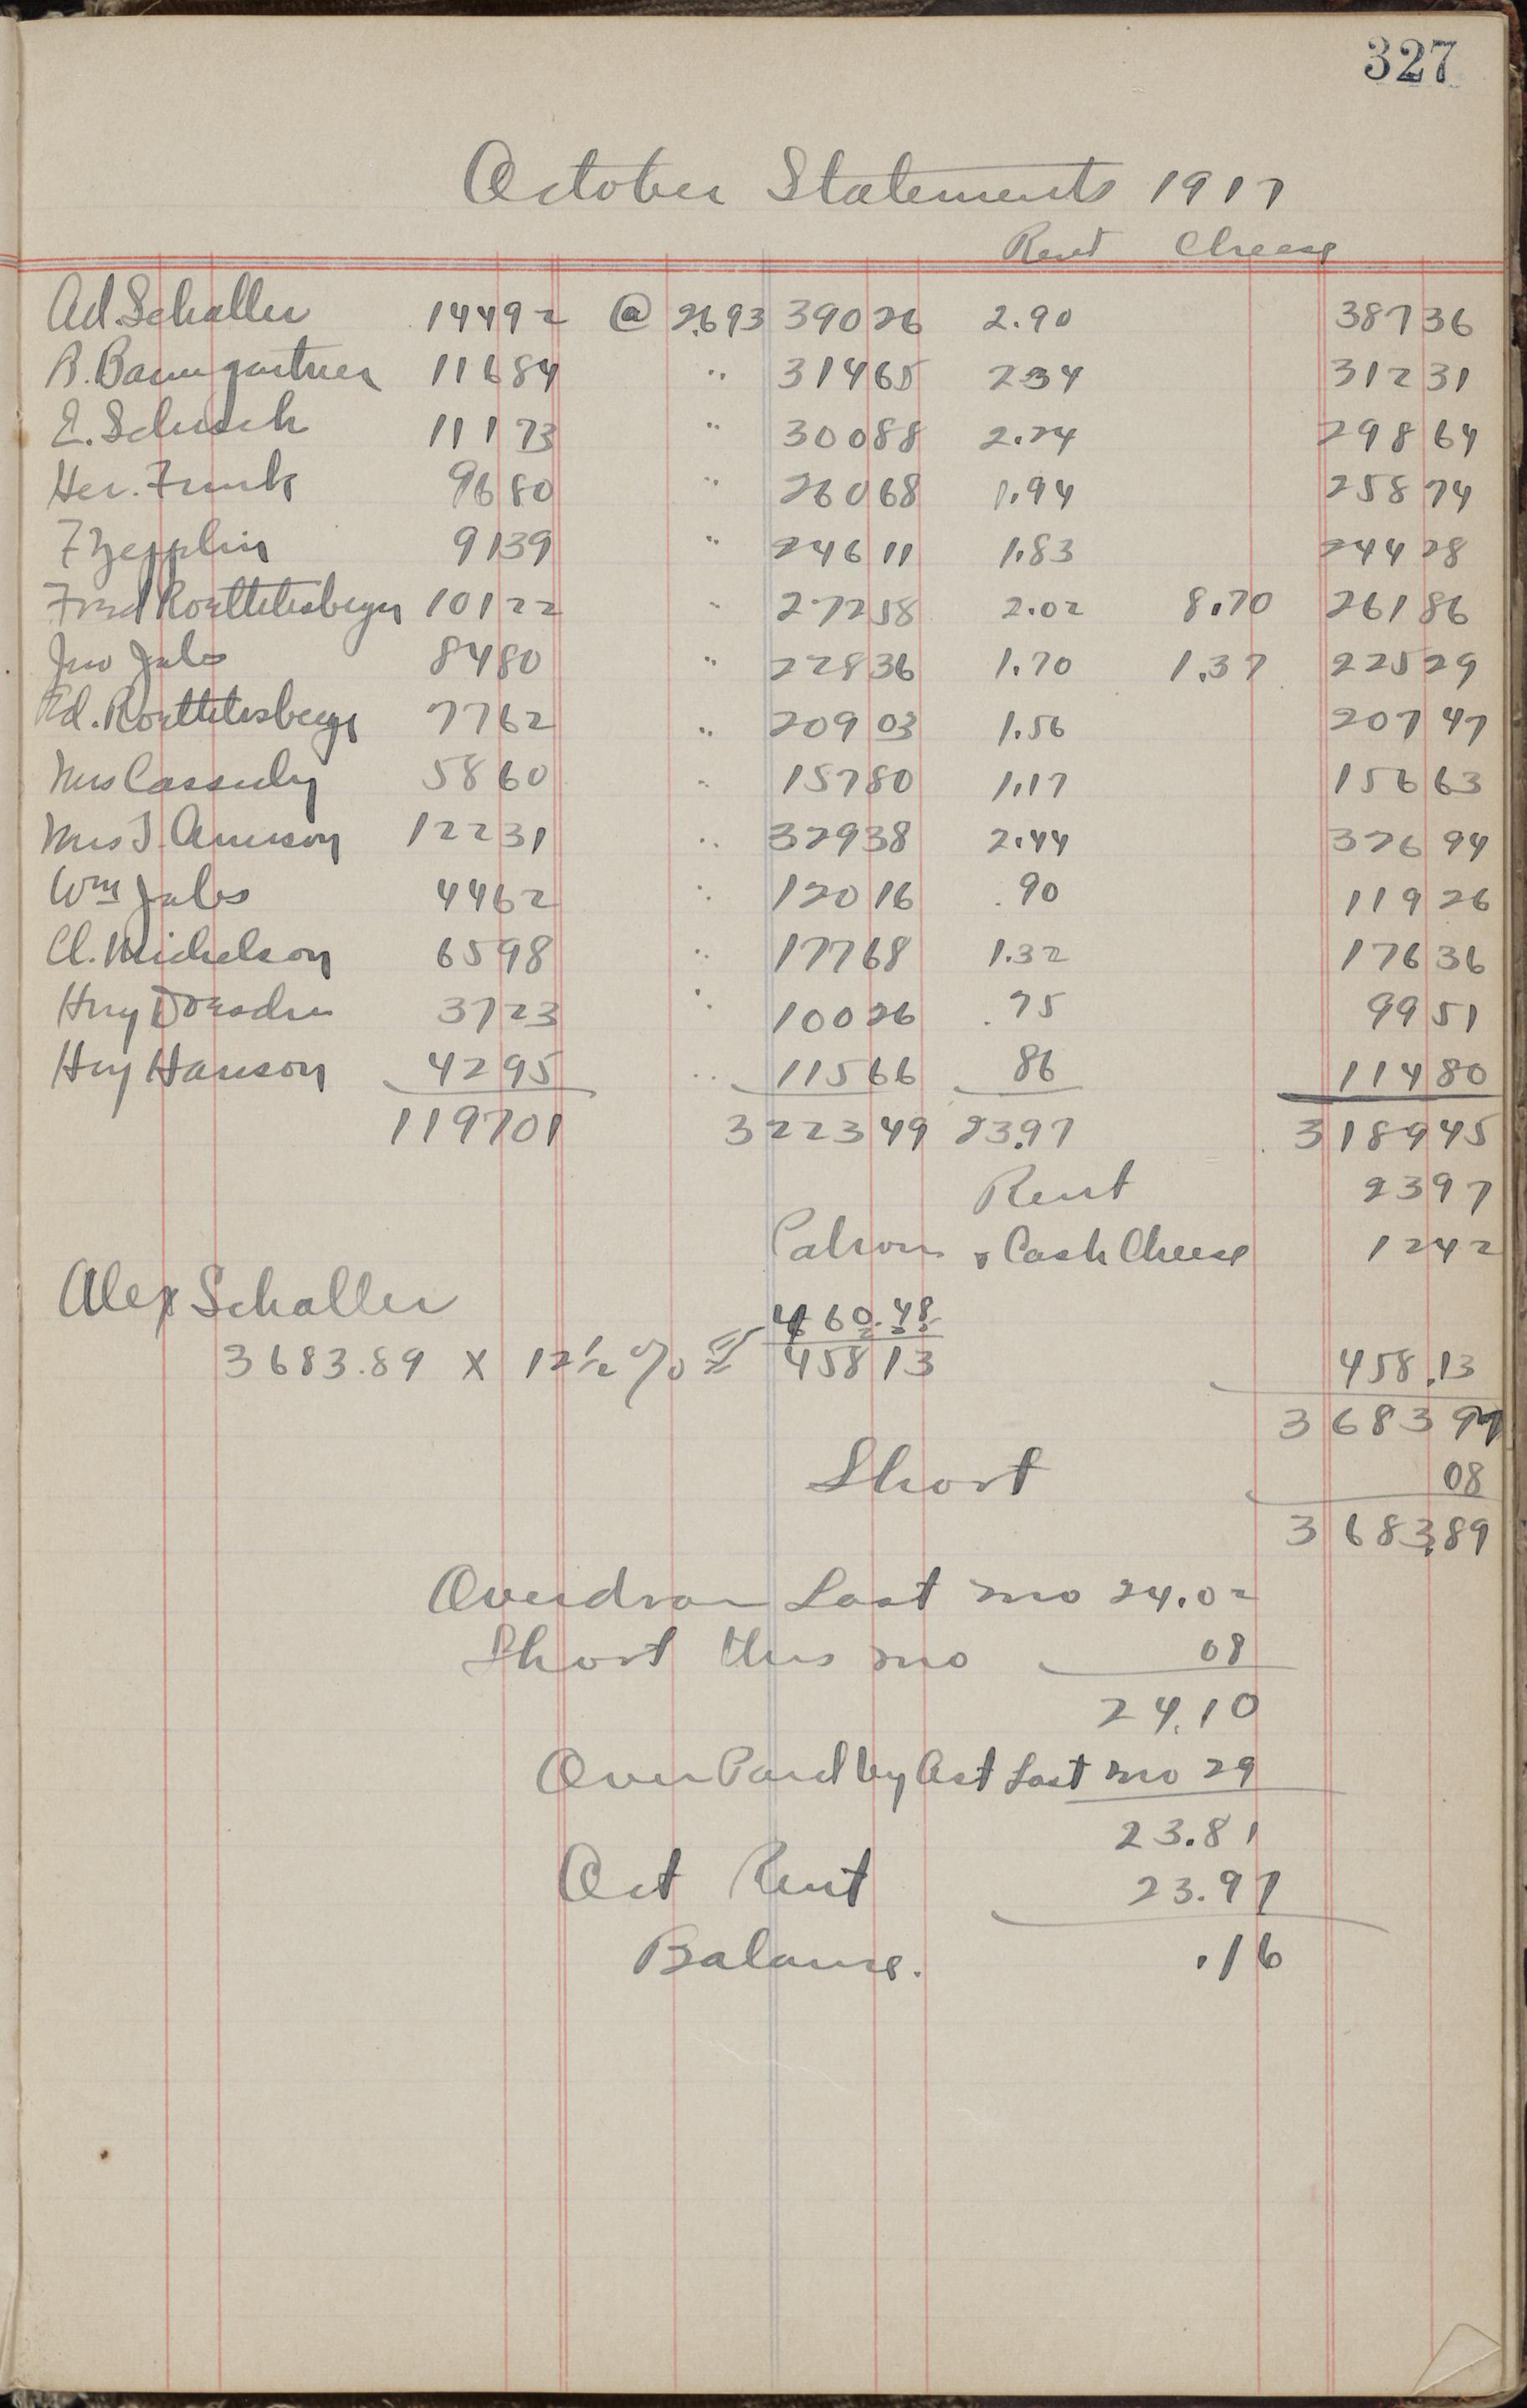 327
October Statements 1917
Rent Cheese
Ad. Schaller 14492 @ 2.693 39026 2.90 38736
B. Baumgartner 11684 " 31465 234 31231
E. Schsch 11173 " 30088 2.24 29864
Her. Funk 9680 " 26068 1.94 25874
F Zepplin 9139 " 24611 1.83 24428
Fred Roettelsberger 10122 " 27258 2.02 8.70 26186
Jno Jules 8480 " 22836 1.70 1.37 22529
Ed. Roettelsberger 7762 " 20903 1.56 20747
Mrs Cassidy 5860 " 15780 1.17 15663
Mrs T. Amerson 12231 " 32938 2.44 32694
Wm Jules 4462 " 12016 .90 11926
Cl. Michelson 6598 " 17768 1.32 17636
Hny Dresden 3723 " 10026 .75 9951
Hny Hanson 4295 " 11566 86 11480
119701 322349 23.97 318945
Rent 2397
Patron & Cash Cheese 1242
Alex Schaller
460.48
3683.89 X 12½% 45813 458.13
368397
Short 08
3683.89
Overdran Last mo 24.02
Short this mo 08
24.10
Over Paid by Ast Last mo 29
23.81
Oct Rent 23.97
Balance. .16